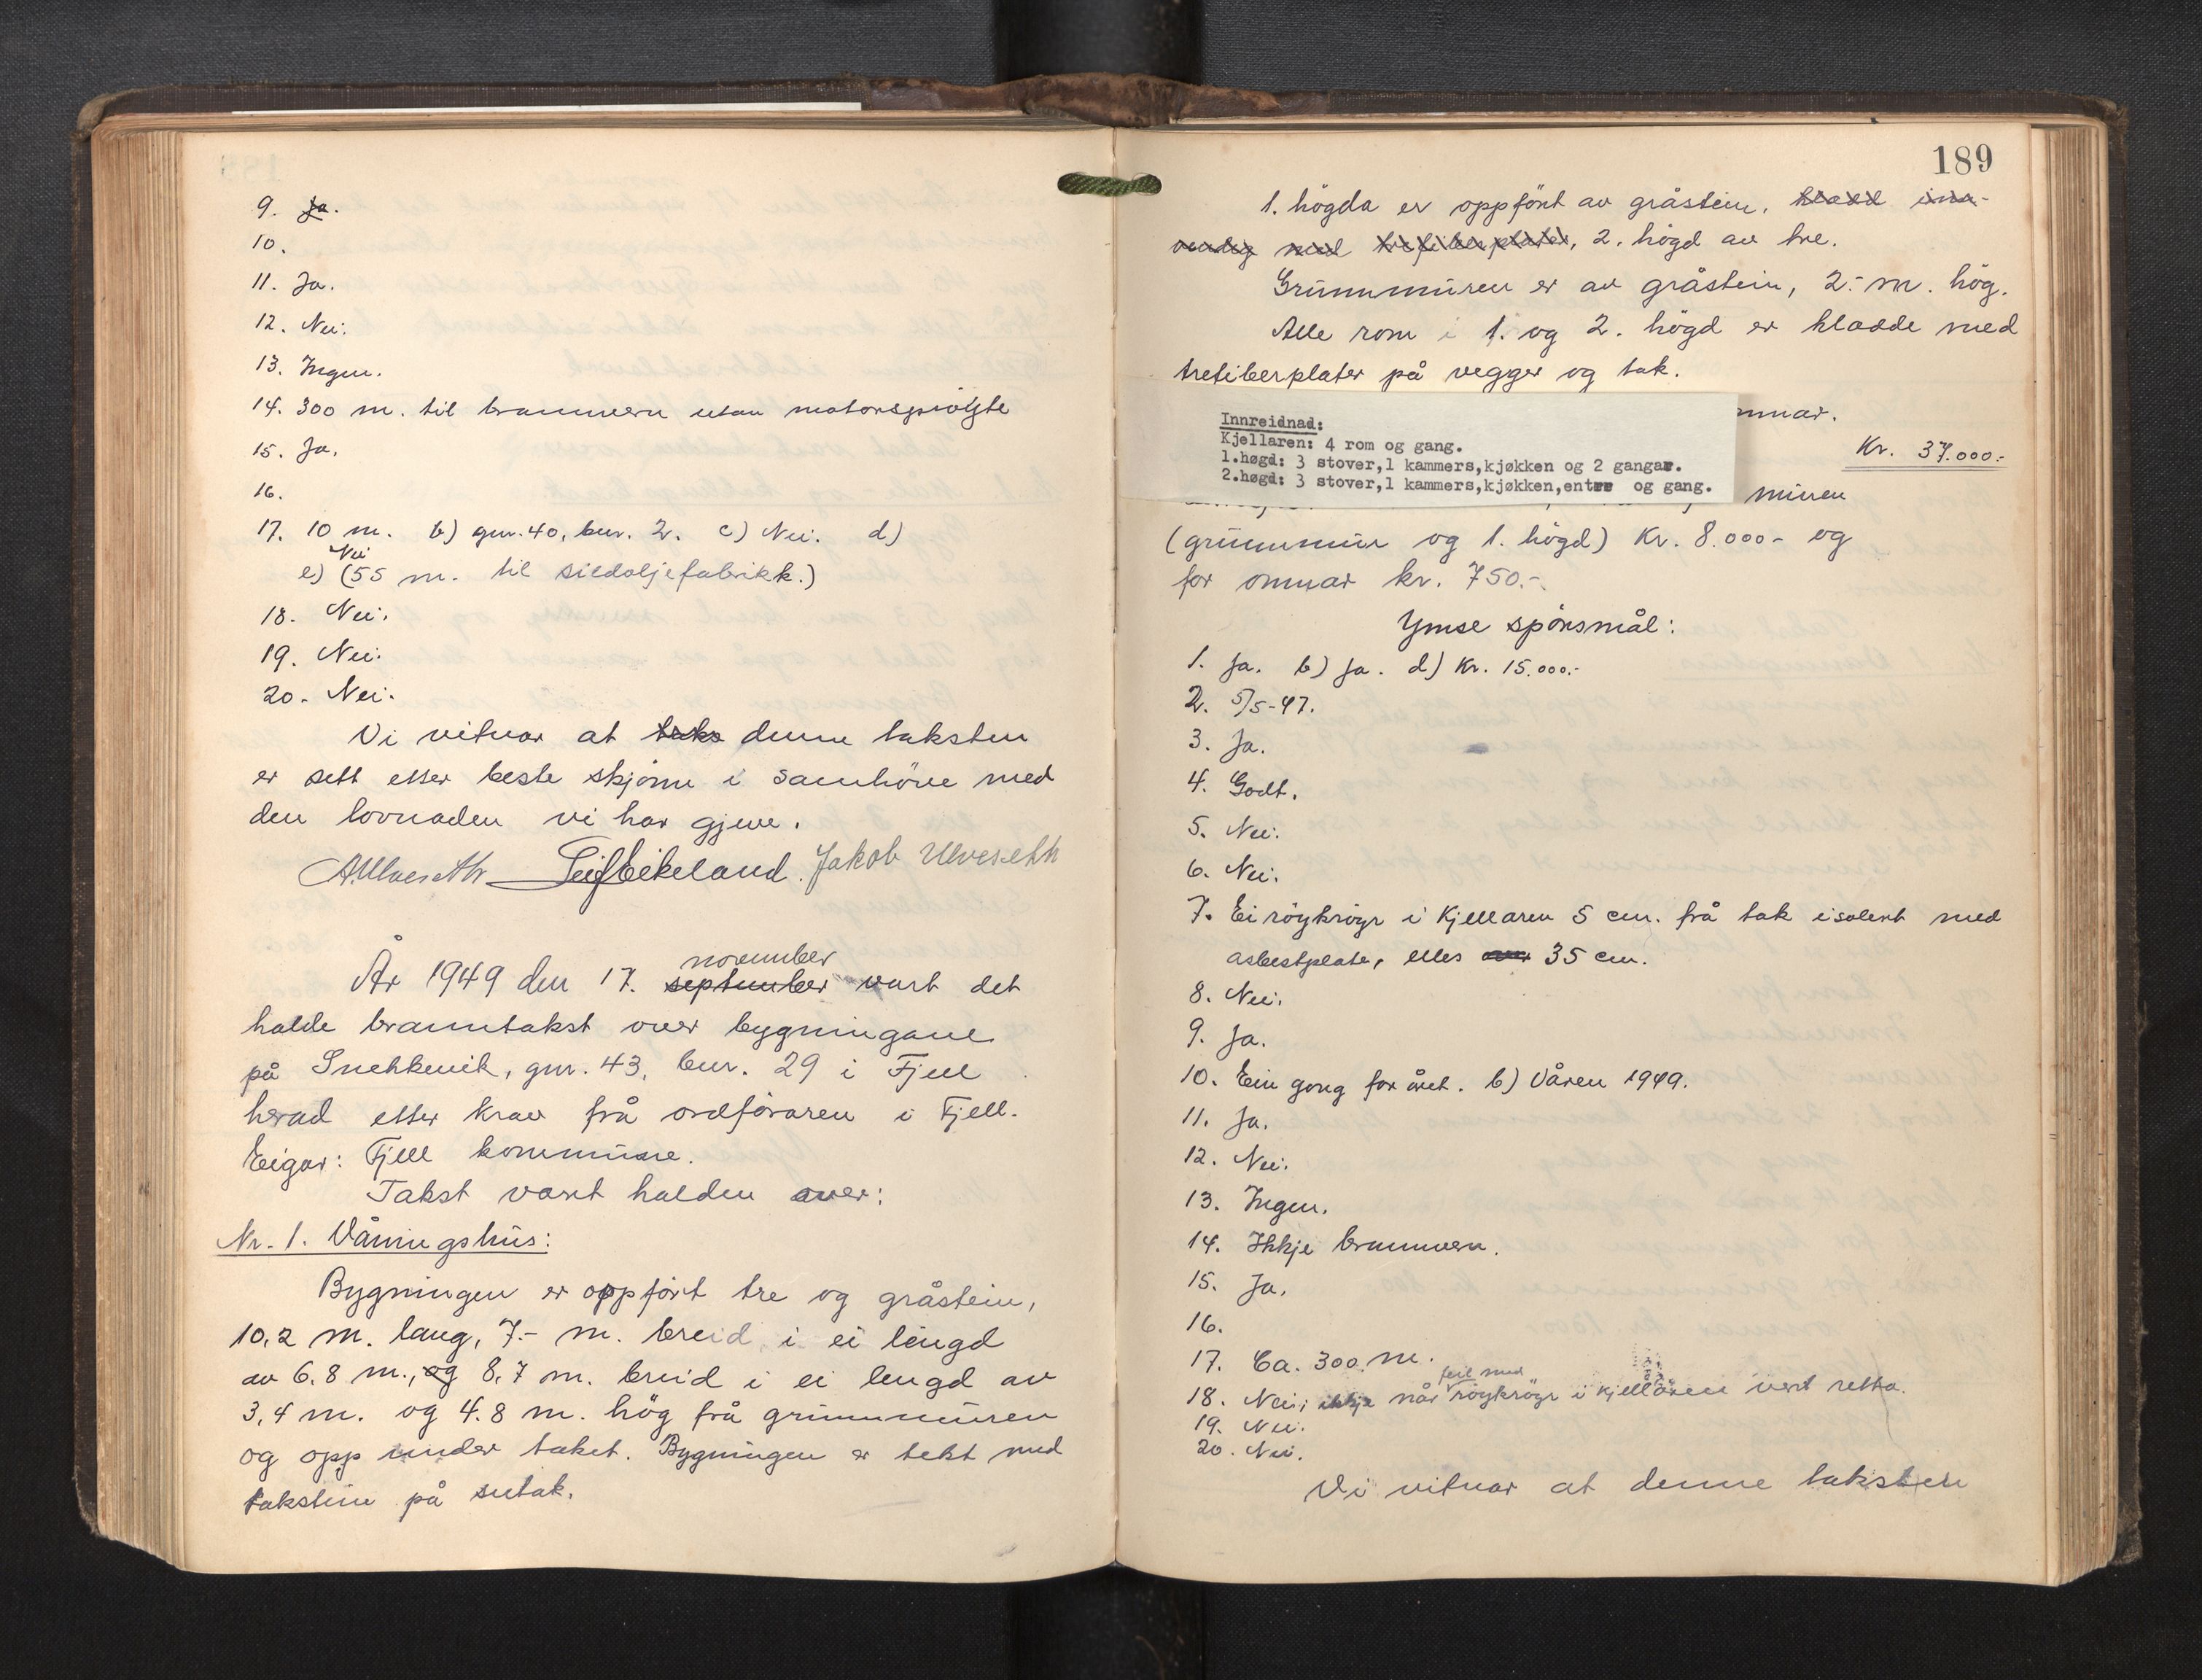 9. Ja.
10.
11. Ja.
12. Nei.
13. Ingen.
14. 300 m. til brannvern utan motorsprøyte
15. Ja.
16.
17. 10 m. b) gnr. 40, bnr. 2. c) Nei. d)
Nei
e) (55 m. til sildoljefabrikk.)
18. Nei.
19. Nei.
20. Nei.
Vi vitnar at taks denne taksten
er sett etter beste skjönn i samhöve med
den lovnaden vi har gjeve.
A. Ulveseth Leif Eikeland. Jakob Ulveseth
november
År 1949 den 17. september vart det
halde branntakst over bygningane
på Snekkevik, gnr. 43, bnr. 29 i Fjell
herad etter krav frå ordföraren i Fjell.
Eigar: Fjell kommune.
Takst vart halden over:
Nr. 1. Våningshus:
Bygningen er oppfört tre og gråstein,
10,2 m. lang, 7.- m. breid i ei lengd
av 6.8 m., og 8,7 m. breid i ei lengd av
3,4 m. og 4.8 m. hög frå grunnmuren
og opp under taket. Bygningen er tekt med
takstein på sutak.
189
1. högda er oppfört av gråstein, kledd inn-
vendig med trefiberplater, 2. högd av tre.
Grunnmuren er av gråstein, 2.- m. hög.
Alle rom i 1. og 2. högd er kledde med
trefiberplater på vegger og tak.
mnar.
Innreidnad:
Kjellaren: 4 rom og gang.
1.høgd: 3 stover,1 kammers,kjøkken og 2 gangar.
2.høgd: 3 stover,1 kammers,kjøkken,entre og gang.
Kr. 37.000.-
muren
(grunnmur og 1. högd) Kr. 8.000.- og
for omnar kr. 750.-
Ymse spörsmål:
1. Ja. b) Ja. d) Kr. 15.000.-
2. 5/5-47.
3. Ja.
4. Godt.
5. Nei.
6. Nei.
7. Ei röykröyr i Kjellaren 5 cm. frå tak isolert med
asbestplate, elles 35 cm.
8. Nei.
9. Ja.
10. Ein gong for året. b) Våren 1949.
11. Ja.
12. Nei.
13. Ingen.
14. Ikkje brannvern.
15. Ja.
16.
17. Ca. 300 m.
feil med
18. Nei, ikkje når röykröyr i kjellaren vert retta.
19. Nei.
20. Nei.
Vi vitnar at denne taksten